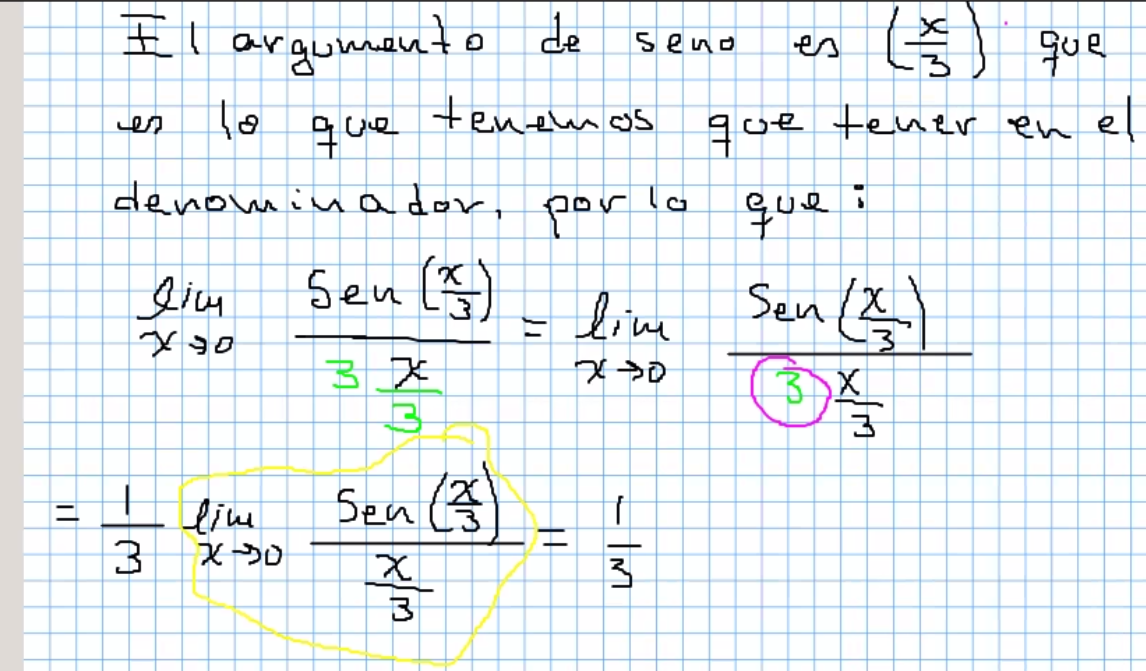 El argumento de seno es (x/3) que
es lo que tenemos que tener en el
denominador, por lo que:
lim x→0 Sen(x/3) / 3 x/3 = lim x→0 Sen(x/3) / 3 x/3
= 1/3 lim x→0 Sen(x/3) / x/3 = 1/3